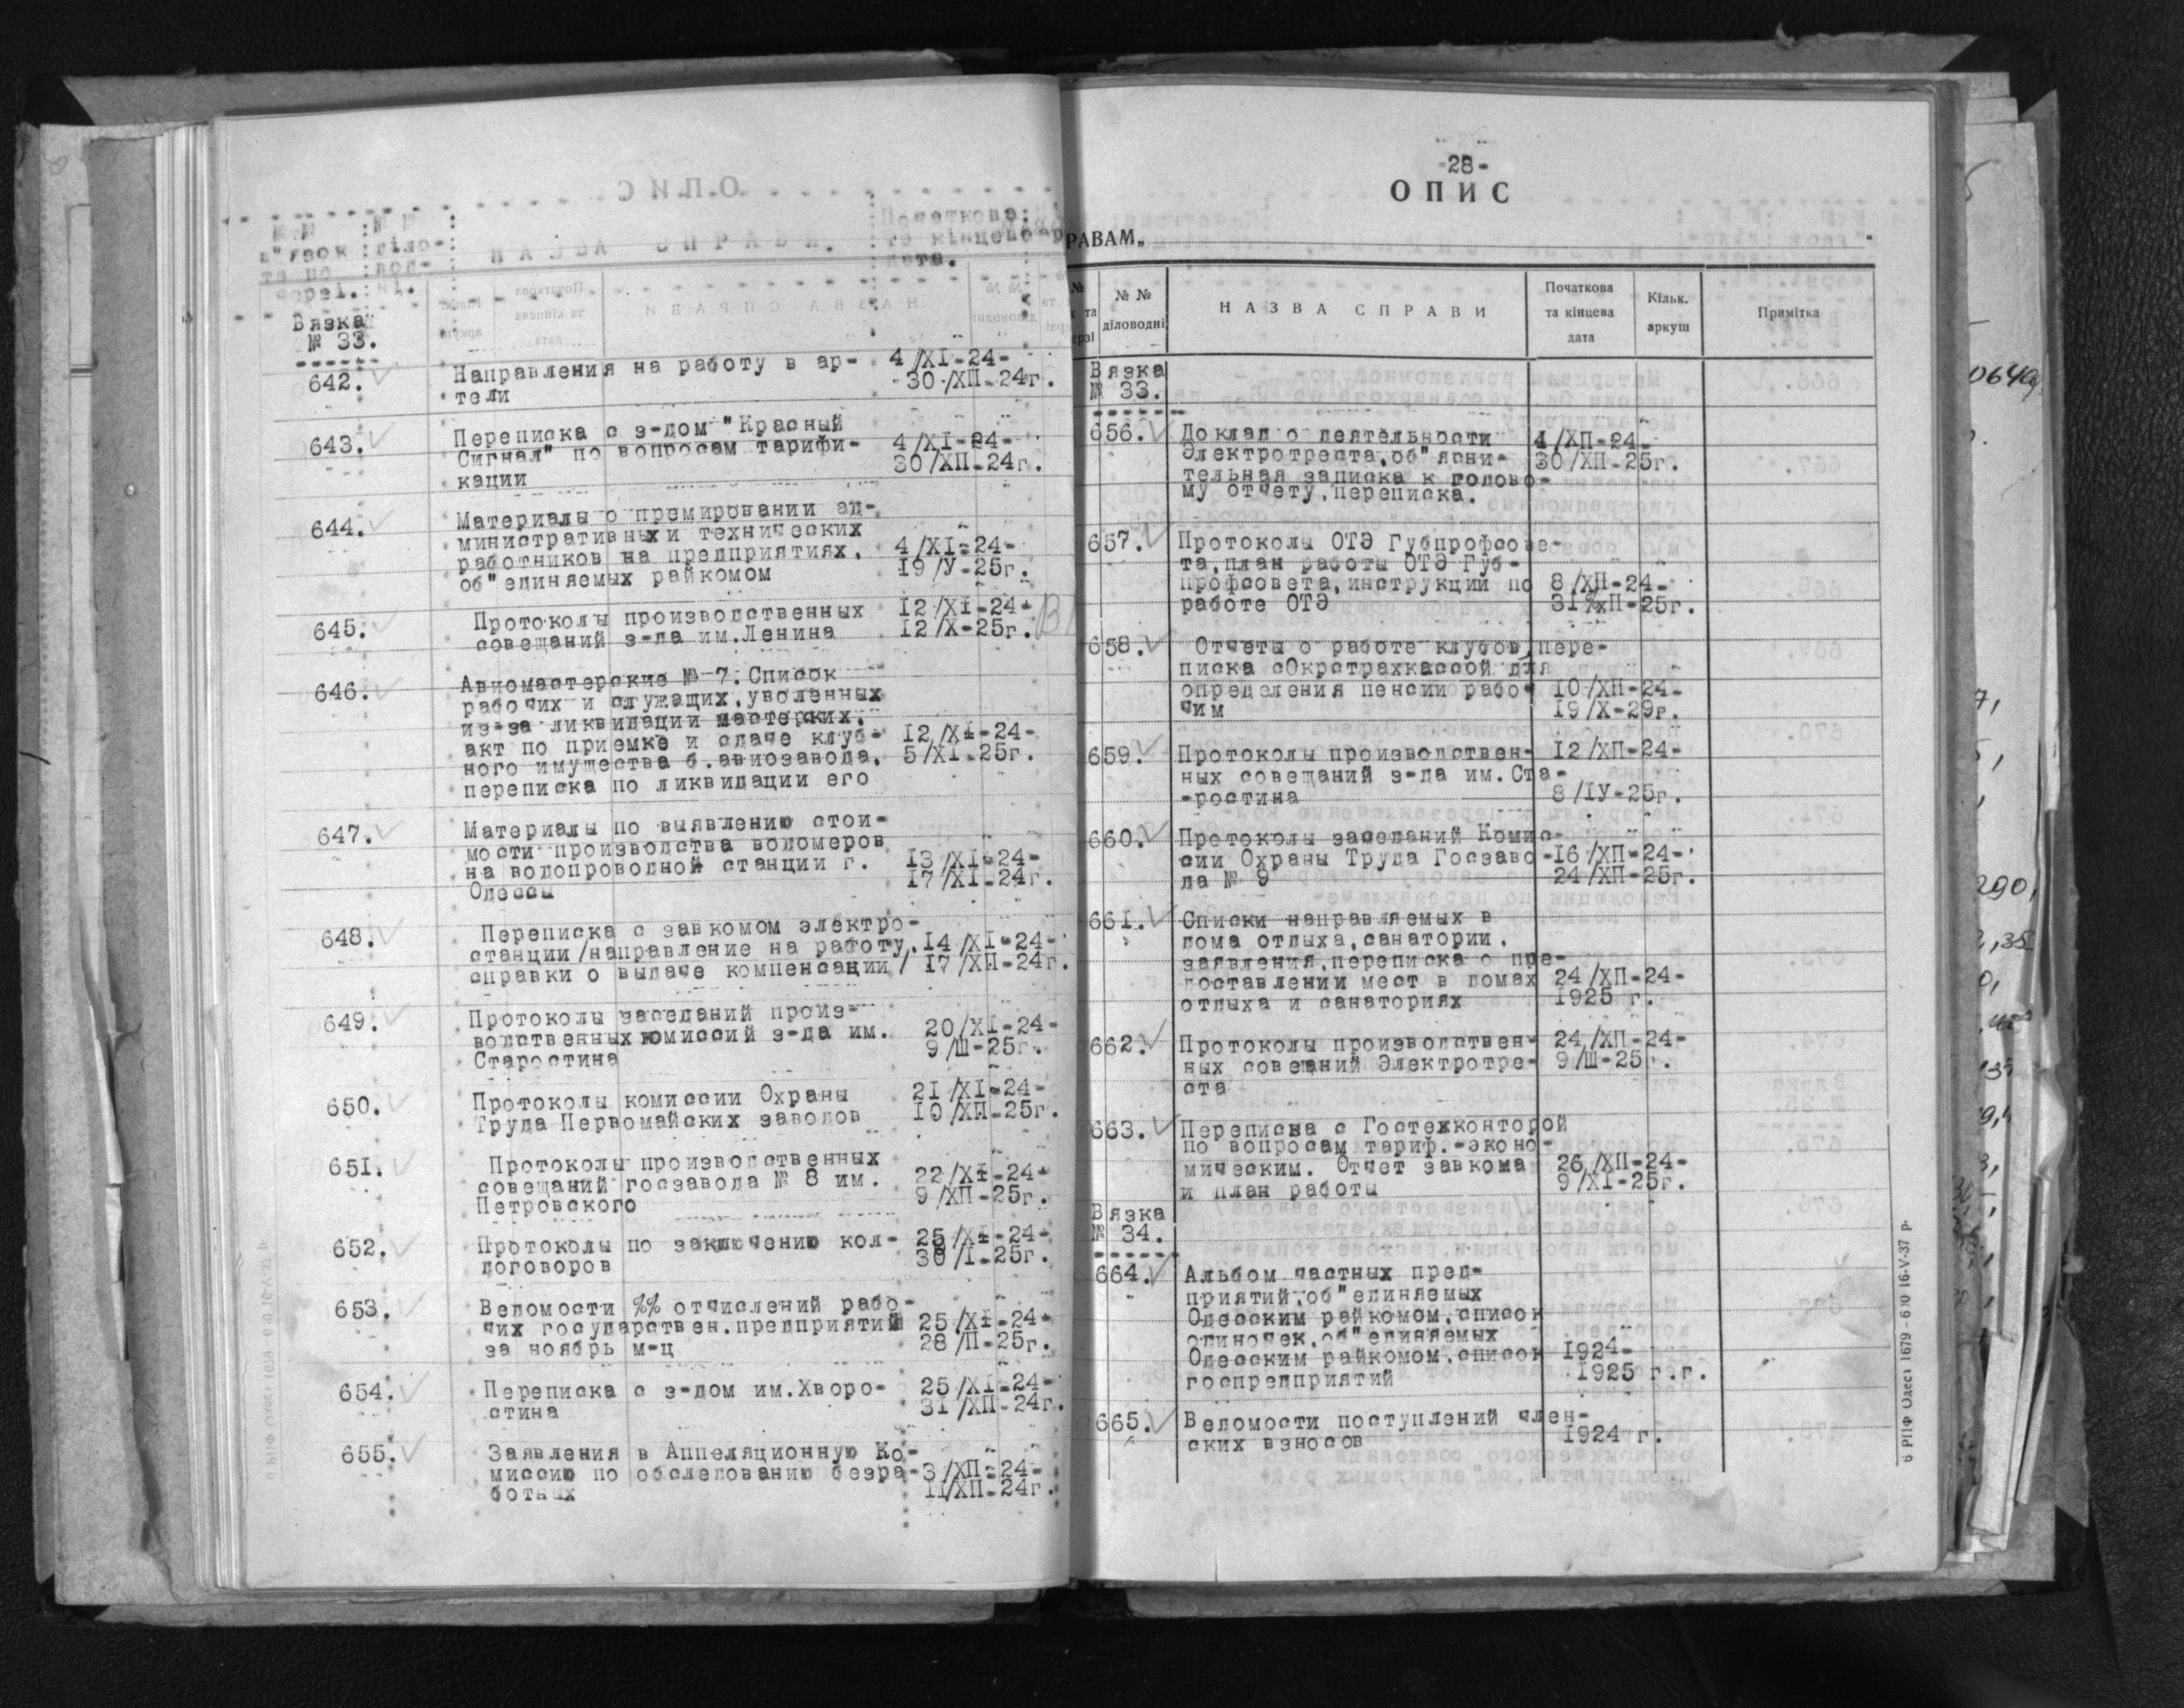 № №
в"язок
та по
черзі.
№ №
діло-
вод-
ні.
НАЗВА СПРАВИ.
Початкова
та кінцева
дата.
Вязка
№ 33.
642.
Направления на работу в ар-
тели
4/XI-24-
30/ХП-24г.
643.
Переписка с з-дом "Красный
Сигнал" по вопросам тарифи-
кации
4/XI-24-
30/ХП-24г.
644.
Материалы о премировании ад-
министративных и технических
работников на предприятиях,
об"единяемых райкомом
4/XI-24-
19/У-25г.
645.
Протоколы производственных
совещаний з-да им.Ленина
12/XI-24-
12/X-25г.
646.
Авиомастерские № 7. Список
рабочих и служащих, уволенных
из-за ликвидации мастерских,
акт по приемке и сдаче клуб-
ного имущества б.авиозавода,
переписка по ликвидации его
12/XI-24-
5/XI-25г.
647.
Материалы по выявлению стои-
мости производства водомеров
на водопроводной станции г.
Одессы
13/XI-24-
17/XI-24г.
648.
Переписка с завкомом электро-
станции/направление на работу,
справки о выдаче компенсации/
14/XI-24-
17/ХП-24г.
649.
Протоколы заседаний произ-
водственных комиссий з-да им.
Старостина
20/XI-24-
9/Ш-25г.
650.
Протоколы комиссии Охраны
Труда Первомайских заводов
21/XI-24-
10/ХП-25г.
651.
Протоколы производственных
совещаний госзавода № 8 им.
Петровского
22/XI-24-
9/ХП-25г.
652.
Протоколы по заключению кол-
договоров
25/XI-24-
30/I-25г.
653.
Ведомости %% отчислений рабо-
чих государствен.предприятий
за ноябрь м-ц
25/XI-24-
28/П-25г.
654.
Переписка с з-дом им.Хворо-
стина
25/XI-24-
31/ХП-24г.
655.
Заявления в Аппеляционную Ко-
миссию по обследованию безра-
ботных
3/ХП-24-
11/ХП-24г.
28-
ОПИС
РАВАМ„
№ №
діловодні
НАЗВА СПРАВИ
Початкова
та кінцева
дата
Кільк.
аркуш
Примітка
Вязка
№ 33.
656.
Доклад о деятельности
Электротреста,об"ясни-
тельная записка к годово-
му отчету,переписка.
4/ХП-24-
30/ХП-25г.
657.
Протоколы ОТЭ Губпрофсове-
та,план работы ОТЭ Губ-
профсовета,инструкции по
работе ОТЭ
8/ХП-24-
31/ХП-25г.
658.
Отчеты о работе клубов,пере-
писка сОкрстрахкассой для
определения пенсии рабо-
чим
10/ХП-24-
19/X-29г.
659.
Протоколы производствен-
ных совещаний з-да им.Ста-
-ростина
12/ХП-24-
8/IУ-25г.
660.
Протоколы заседаний Комис-
сии Охраны Труда Госзаво-
да № 9
16/ХП-24-
24/ХП-25г.
661.
Списки направляемых в
дома отдыха,санатории,
заявления,переписка о пре-
доставлении мест в домах
отдыха и санаториях
24/ХП-24-
1925 г.
662.
Протоколы производствен-
ных совещаний Электротре-
ста
24/ХП-24-
9/Ш-25г.
663.
Переписка с Гостехконторой
по вопросам тариф.-эконо-
мическим. Отчет завкома
и план работы
26/ХП-24-
9/XI-25г.
Вязка
№ 34.
664.
Альбом частных пред-
приятий,об"единяемых
Одесским райкомом,список
одиночек,об"единяемых
Одесским райкомом,список
госпредприятий
1924-
1925 г.г.
665.
Ведомости поступлений член-
ских взносов
1924 г.